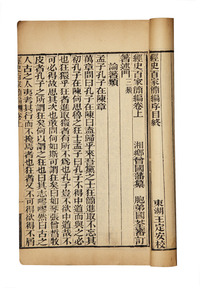 經史百家簡編序目終
東湖王定安校
經史百家簡編卷上
湘鄉曾國藩纂 胞弟國荃審訂
著述門三類
論著類
孟子孔子在陳章
萬章問曰孔子在陳曰盍歸乎來吾黨之士狂簡進取不忘其
初孔子在陳何思魯之狂士孟子曰孔子不得中道而與之必
也狂獧乎狂者進取獧者有所不爲也孔子豈不欲中道哉不
可必得故思其次也敢問何如斯可謂狂矣曰如琴張曾皙牧
皮者孔子之所謂狂矣何以謂之狂也曰其志嘐嘐然曰古之
人古之人夷考其行而不掩焉者也狂者又不可得欲得不屑